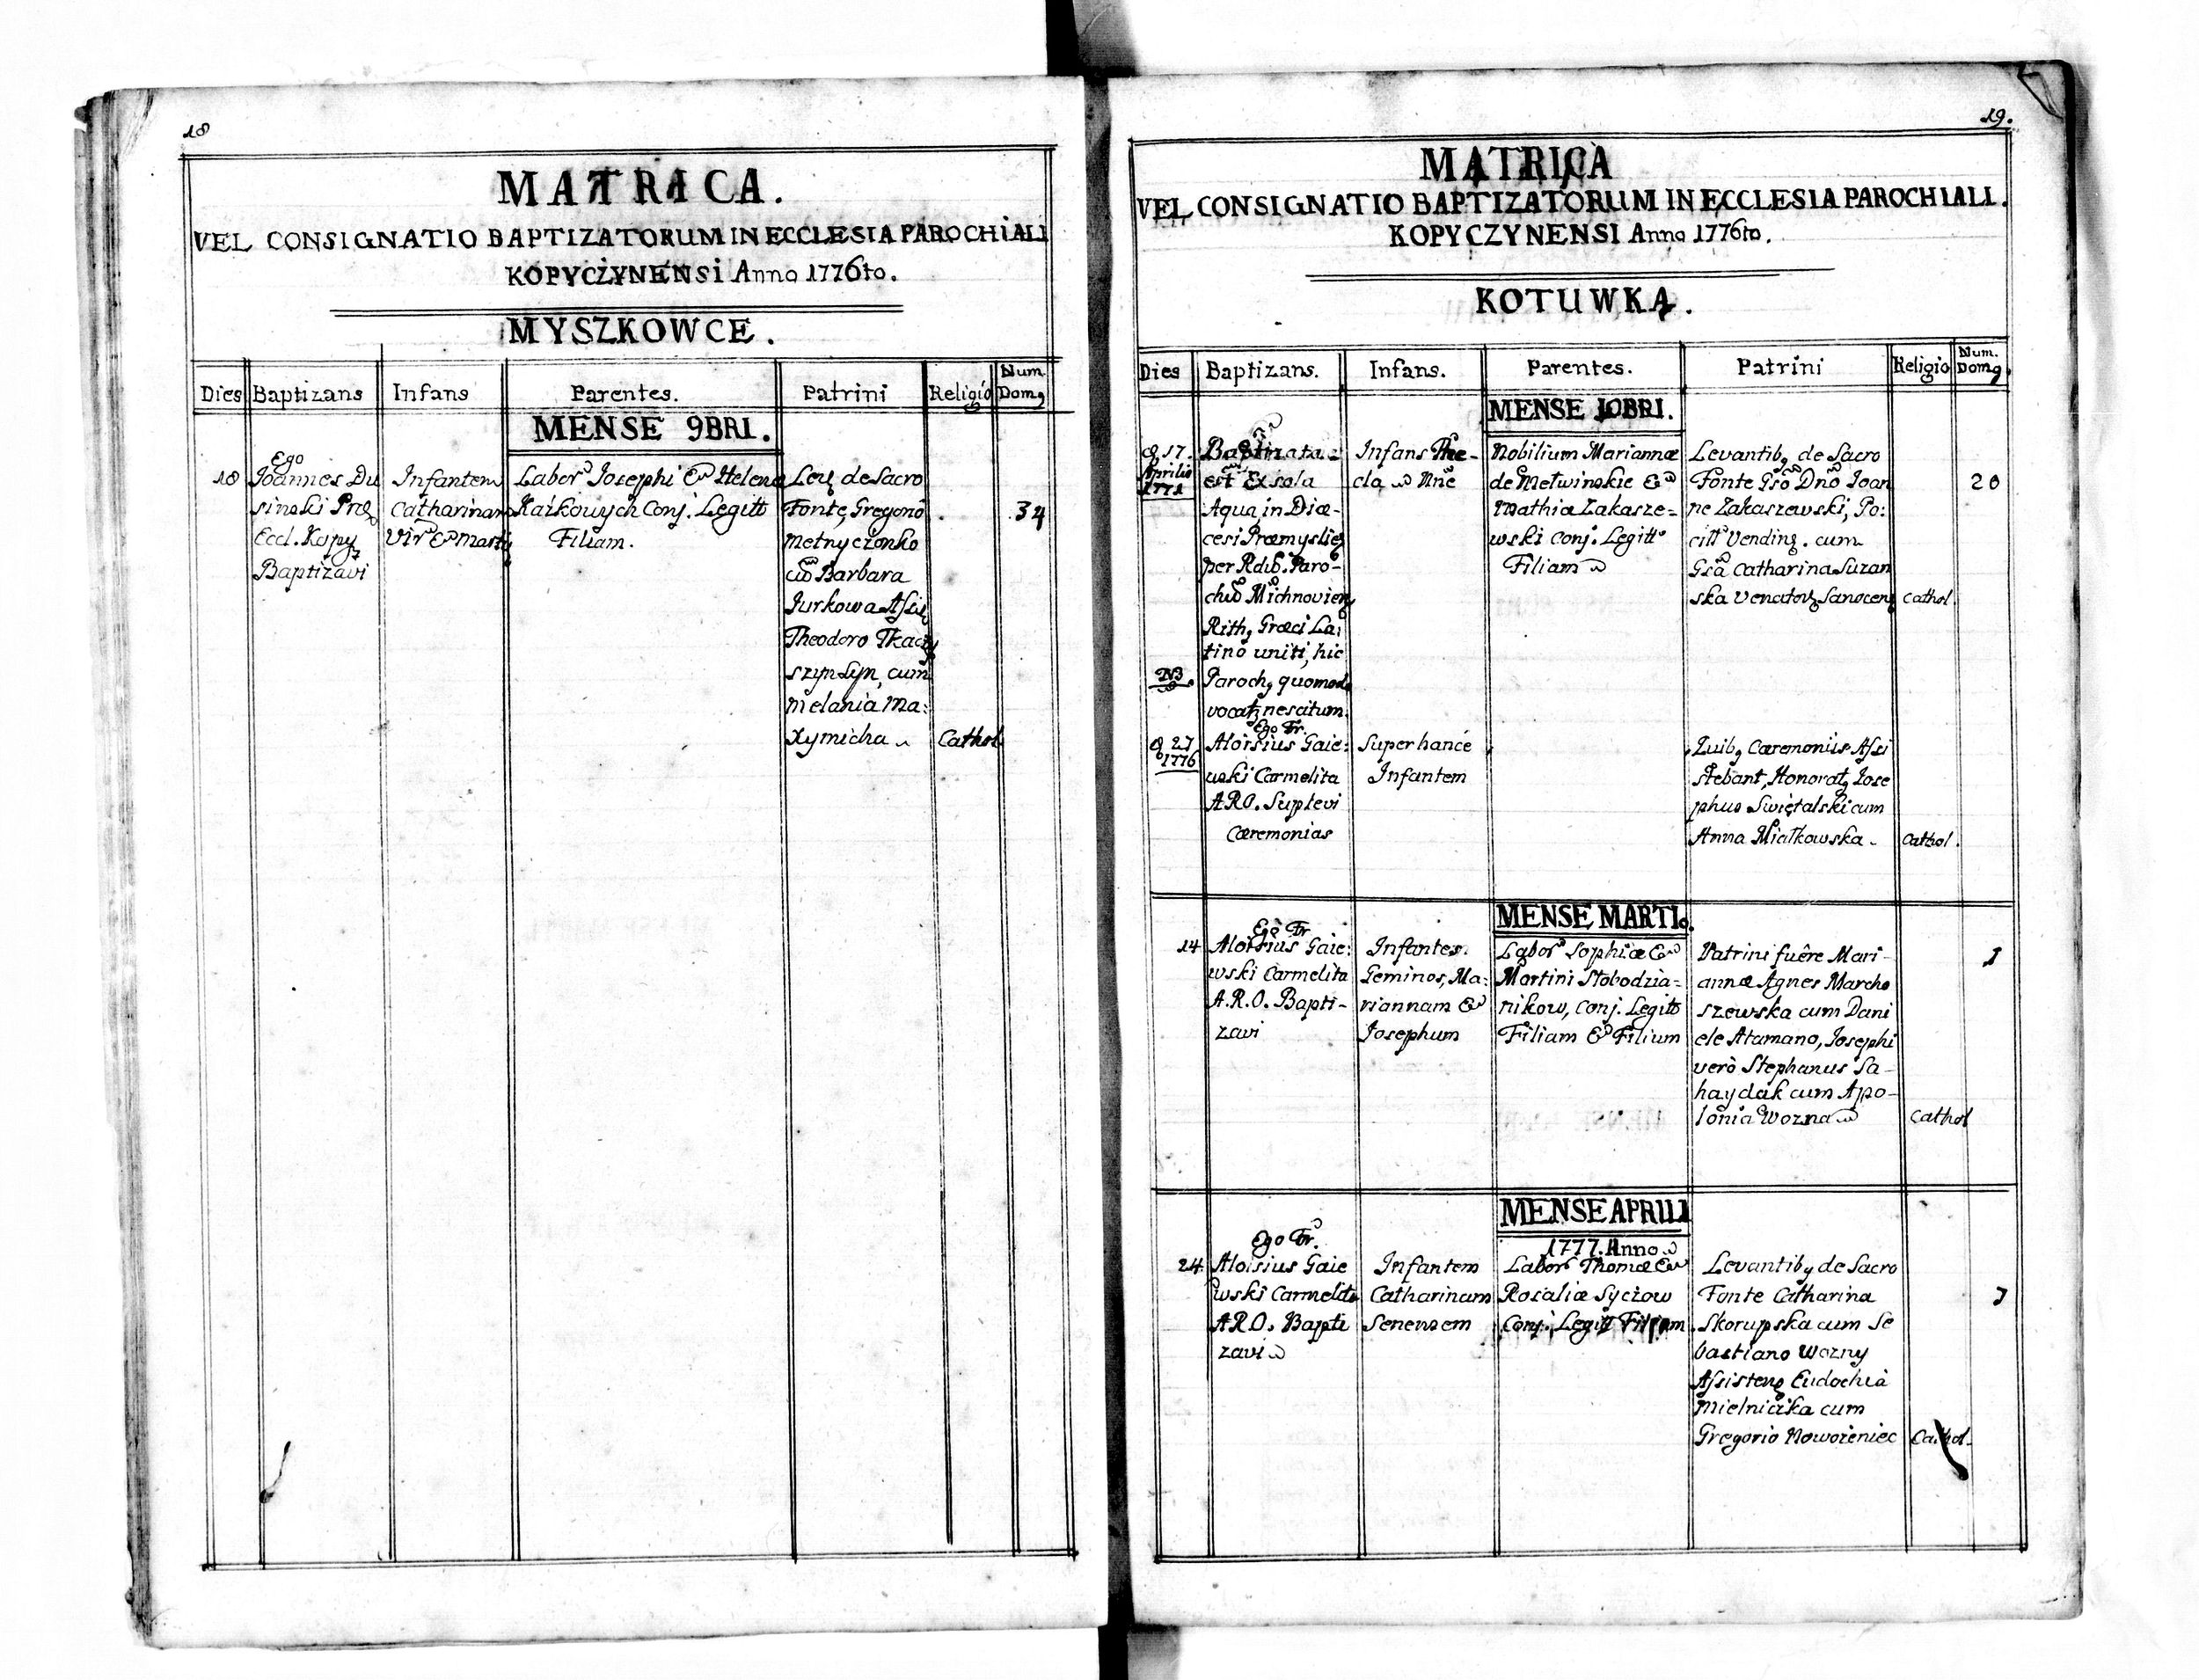 18
MATRICA.
VEL CONSIGNATIO BAPTIZATORUM IN ECCLESIA PAROCHIALI
KOPYCZYNENSI Anno 1776to.
MYSZKOWCE.
Dies Baptizans Infans Parentes. Patrini Religio Num. Domq
MENSE 9BRI.
18
Ego
Joannes Du
sinski
Eccl. Kopy
Baptizavi
Infantem
Catharinam
Vir & Marty
Labor Josephi & Helena
Conj. Legitt
Filiam.
de Sacro
Fonte, Gregorio
Metnyczonko
cum Barbara
Jurkowa
Theodoro
szyn Syn, cum
Melania Ma:
xymicha
Cathol
34
19.
MATRICA
VEL CONSIGNATIO BAPTIZATORUM IN ECCLESIA PAROCHIALI.
KOPYCZYNENSI Anno 1776to.
KOTUWKA.
Dies Baptizans. Infans. Parentes. Patrini Religio Num. Domq
MENSE 10BRI.
17
Aprilis
1771
Baptizata
est Ex sola
Aqua in Diæ-
cesi Præmyslien
per Rdum. Paro-
chum Michnovien
Rith, Græci La:
tino uniti, hic
NB
Paroch, quomodo
nescitum.
Infans The-
cla Nne
Nobilium Mariannæ
de Metwinskie &
Mathiæ Zakasze-
wski Conj. Legitt
Filiam
Levantibq de Sacro
Fonte Gso Dno Joan
ne Zakaszewski, Po:
cill Vending. cum
Gsa Catharina Suzan
ska Venator Sanocens
Cathol.
20
27
1776
Ego Fr.
Aloisius Gaie:
wski Carmelita
A.R.O. Suplevi
Cæremonias
Super hance
Infantem
Quibq Cæremoniis Assi
stebant, Honorat Jose
phus Swiętalski cum
Anna Miałkowska.
Cathol.
MENSE MARTI.
14
Ego Fr.
Aloisius Gaie:
wski Carmelita
A.R.O. Bapti-
zavi
Infantes.
Geminos, Ma:
riannam &
Josephum
Labor Sophiæ &
Martini Słobodzia-
nikow, Conj. Legitt
Filiam & Filium
Patrini fuêre Mari-
annæ Agnes Marcho
szewska cum Dani
ele Atamano, Josephi
verò Stephanus Sa-
haydak cum Apo-
lonia Wozna
Cathol
1
MENSE APRILI
1777. Anno
24
Ego Fr.
Aloisius Gaie
wski Carmelita
A.R.O. Bapti
zavi
Infantem
Catharinam
Senensem
Labor Thomæ &
Rosaliæ Syczow
Conj. Legitt Filiam
Levantibq de Sacro
Fonte Catharina
Skorupska cum Se
bastiano Wozny
Assisten Eudochia
Mielniczka cum
Gregorio Nowożeniec
Cathol.